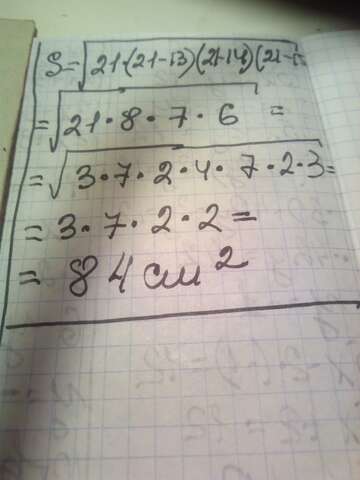 S=√21·(21-13)(21-14)(21-
=√21·8·7·6 =
=√3·7·2·4·7·2·3=
=3·7·2·2=
=84 см²